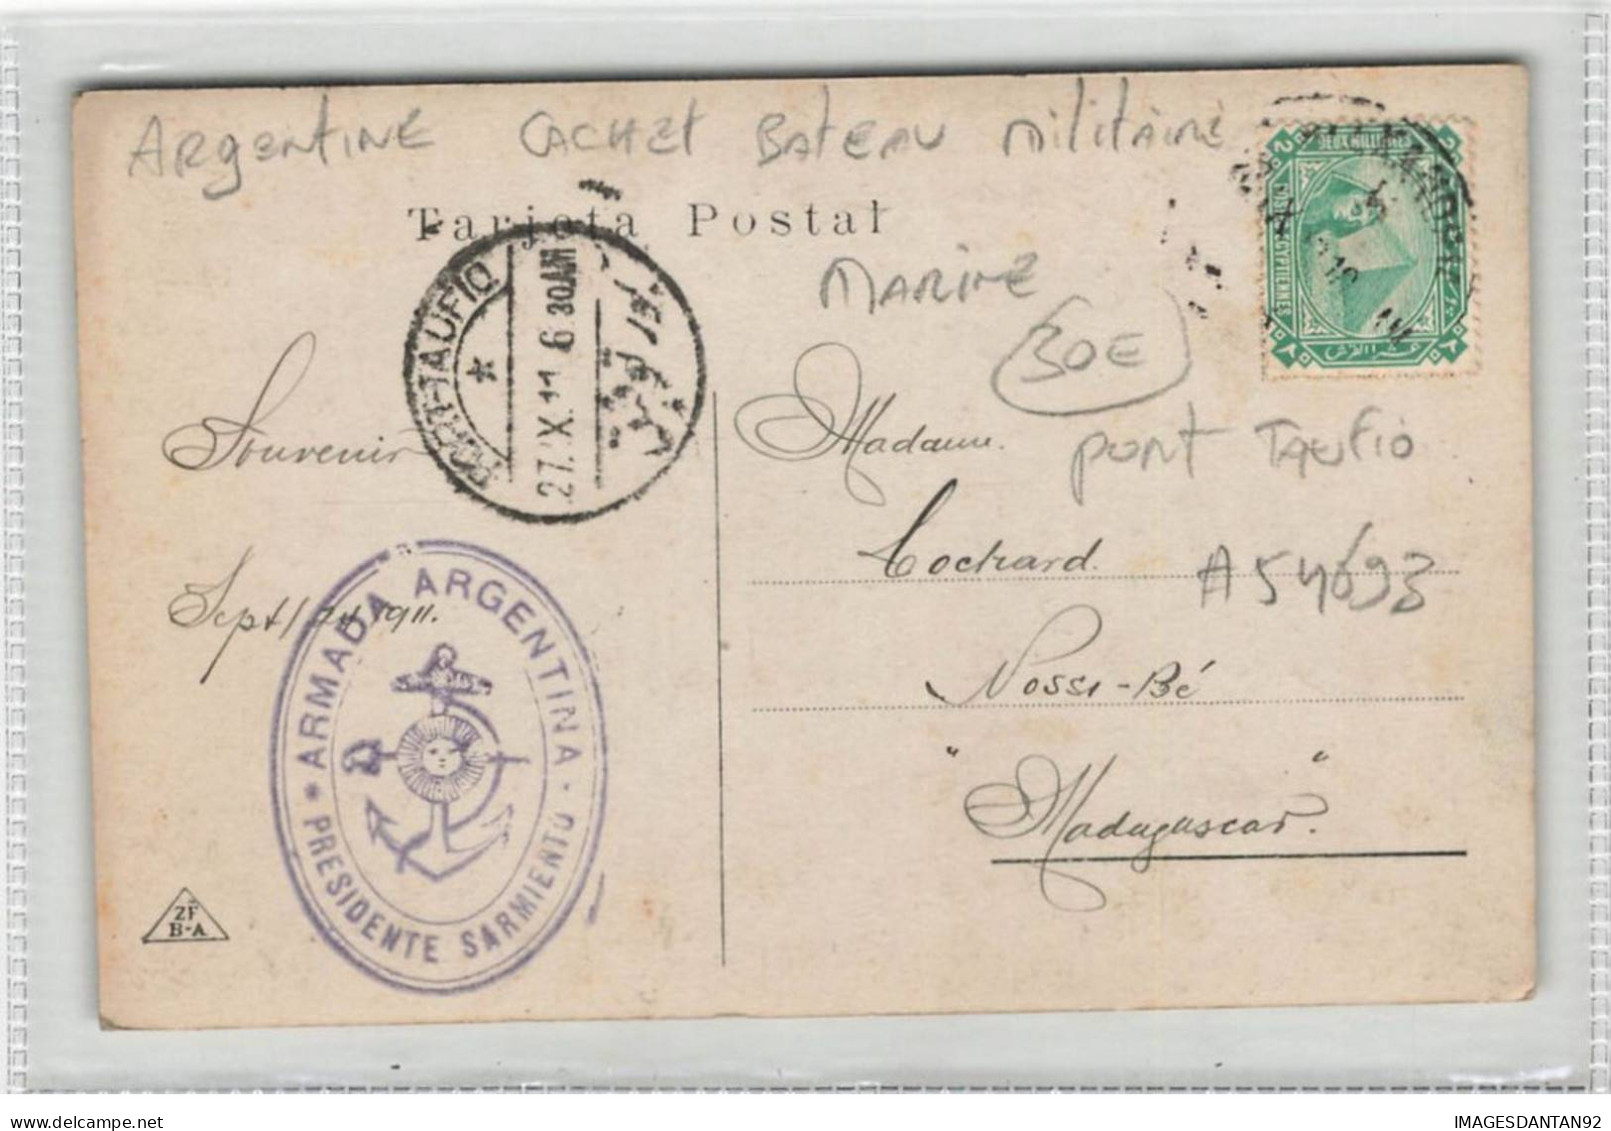 ARgENTINE CACHET BATEAU MILITAIRE
Tarjeta Postal
MARINE
30E
PORT TAUFIQ
A54693
DEUX MILLIEMES
POSTES EGYPTIENNES
2
2
PORT-TAUFIQ
27.IX.11 6 30AM
Souvenir
Sept/ 1911.
Madame
Cochard.
Nossi-Bé
"Madagascar".
ARMADA ARGENTINA
PRESIDENTE SARMIENTO
ZF
B-A
delcampe.net
IMAGESDANTAN92